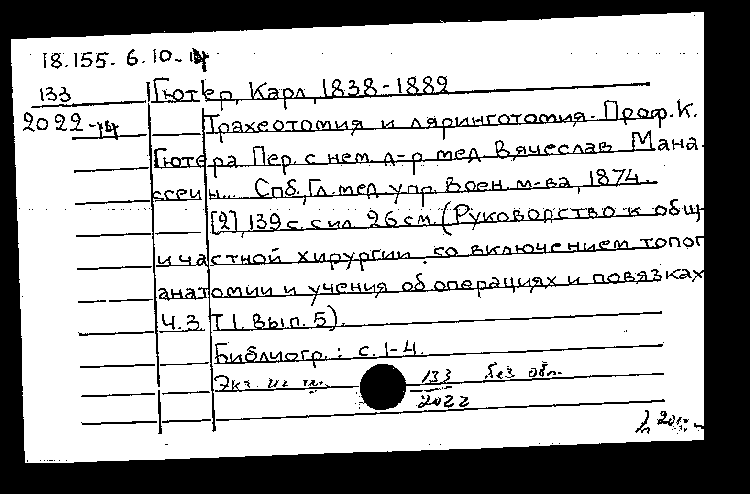 18.155. 6.10-14
133 Гютер, Карл, 1838-1882
2022-14 Трахеотомия и ляринготомия. Проф. К.
Гютера. Пер. с нем. д-р мед. Вячеслав Мана-
ссеин... Спб, Гл. мед. упр. Воен. м-ва, 1874.
[2], 139 с. с ил. 26 см. (Руководство к общ-
и частной хирургии, со включением топог
анатомии и учения об операциях и повязках
Ч.3. Т1. Вып. 5).
Библиогр.: с. 1-4.
Экз. 133 без обл.
2022